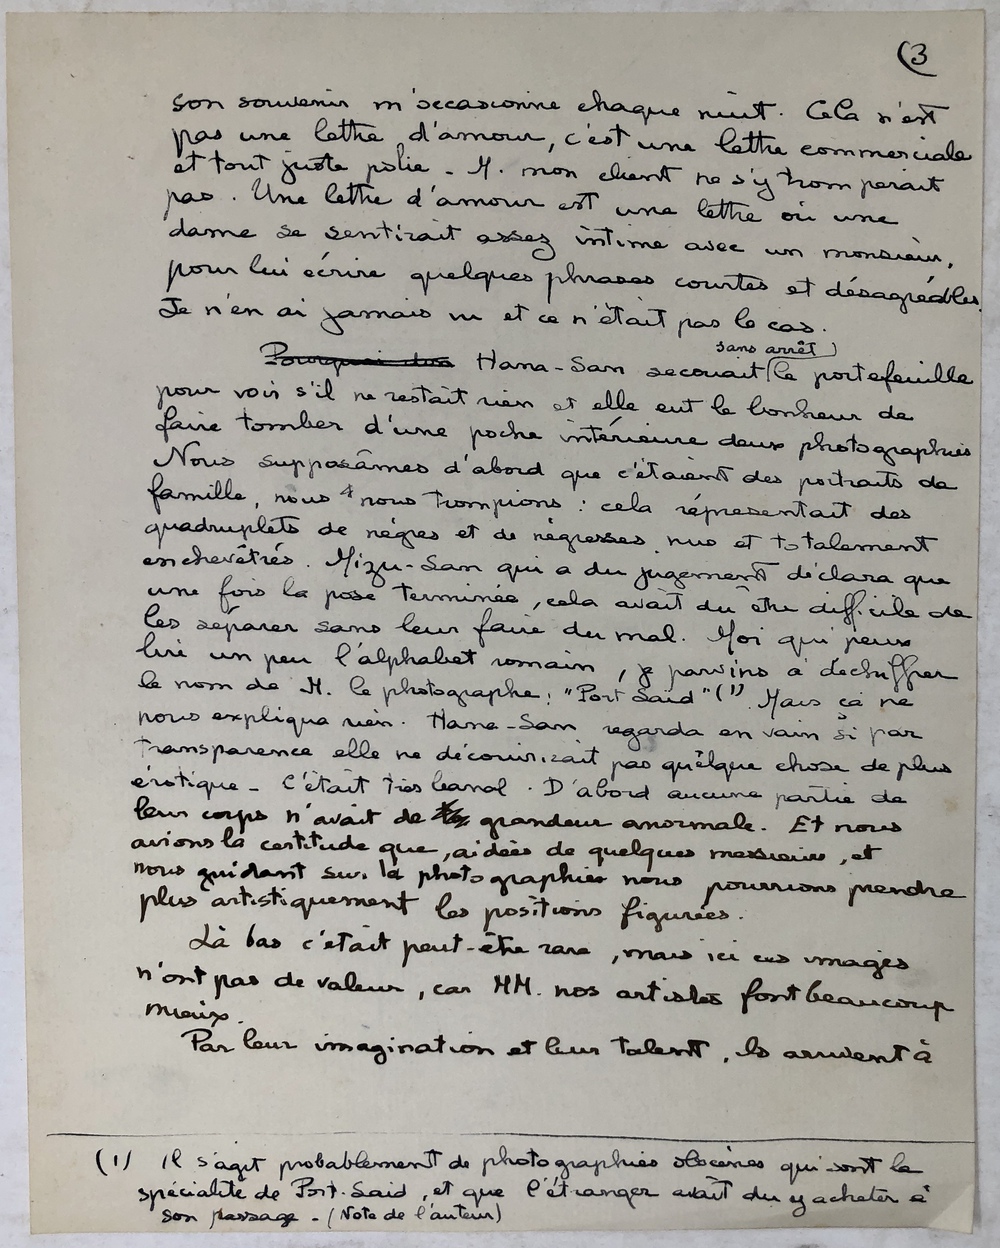 (3
son souvenir m'occasionne chaque nuit. Cela n'est
pas une lettre d'amour, c'est une lettre commerciale
et tout juste polie - M. mon client ne s'y tromperait
pas. Une lettre d'amour est une lettre où une
dame se sentirait assez intime avec un monsieur,
pour lui écrire quelques phrases courtes et désagréables.
Je n'en ai jamais vu et ce n'était pas le cas.
sans arrêt
Pourquoi Hana-San secouait le portefeuille
pour voir s'il ne restait rien et elle eut le bonheur de
faire tomber d'une poche intérieure deux photographies
Nous supposâmes d'abord que c'étaient des portraits de
famille, nous nous trompions : cela représentait des
quadruplets de nègres et de négresses nus et totalement
enchevêtrés. Mizu-San qui a du jugement déclara que
une fois la pose terminée, cela avait dû être difficile de
les séparer sans leur faire du mal. Moi qui peux
lire un peu l'alphabet romain, je parvins à déchiffrer
le nom de M. le photographe : "Port Saïd" (1). Mais ça ne
nous expliqua rien. Hana-San regarda en vain si par
transparence elle ne découvrirait pas quelque chose de plus
érotique - C'était très banal. D'abord aucune partie de
leur corps n'avait de grandeur anormale. Et nous
avions la certitude que, aidées de quelques messieurs, et
nous guidant sur la photographie nous pourrions prendre
plus artistiquement les positions figurées.
Là bas c'était peut-être rare, mais ici ces images
n'ont pas de valeur, car MM. nos artistes font beaucoup
mieux.
Par leur imagination et leur talent, ils arrivent à
(1) Il s'agit probablement de photographies obscènes qui sont la
spécialité de Port-Saïd, et que l'étranger avait dû y acheter à
son passage - (Note de l'auteur)